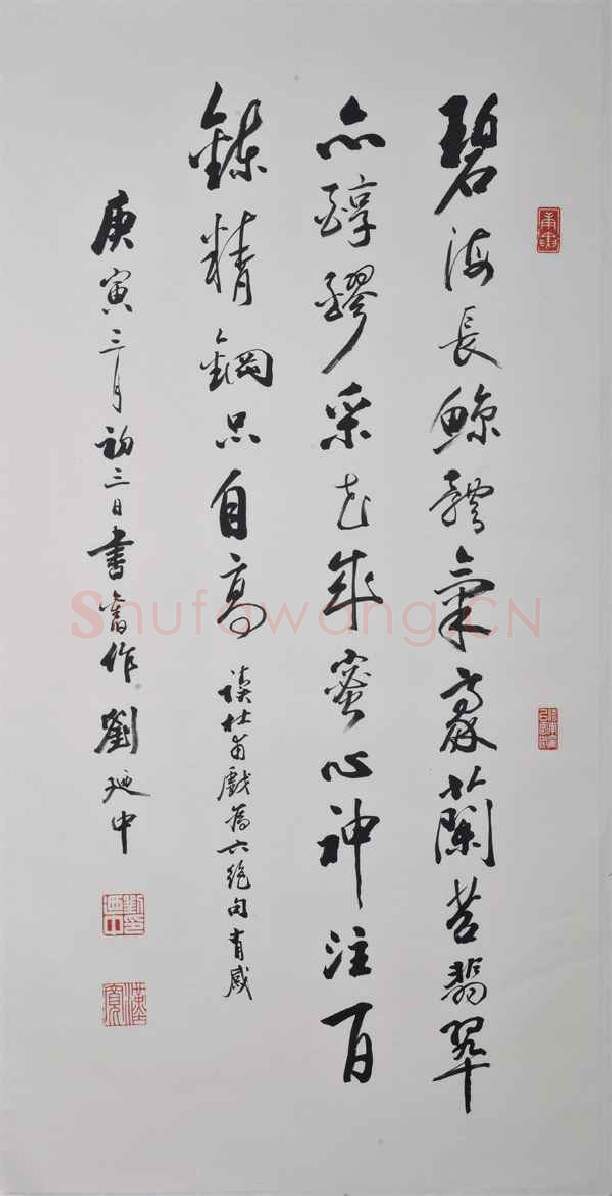 碧海長鯨體氣豪蘭苕翡翠
亦醇醪采花成蜜心神注百
鍊精鋼品自高
讀杜甫戲為六絕句有感
庚寅三月初三日書舊作劉廼中
Shufawang.CN